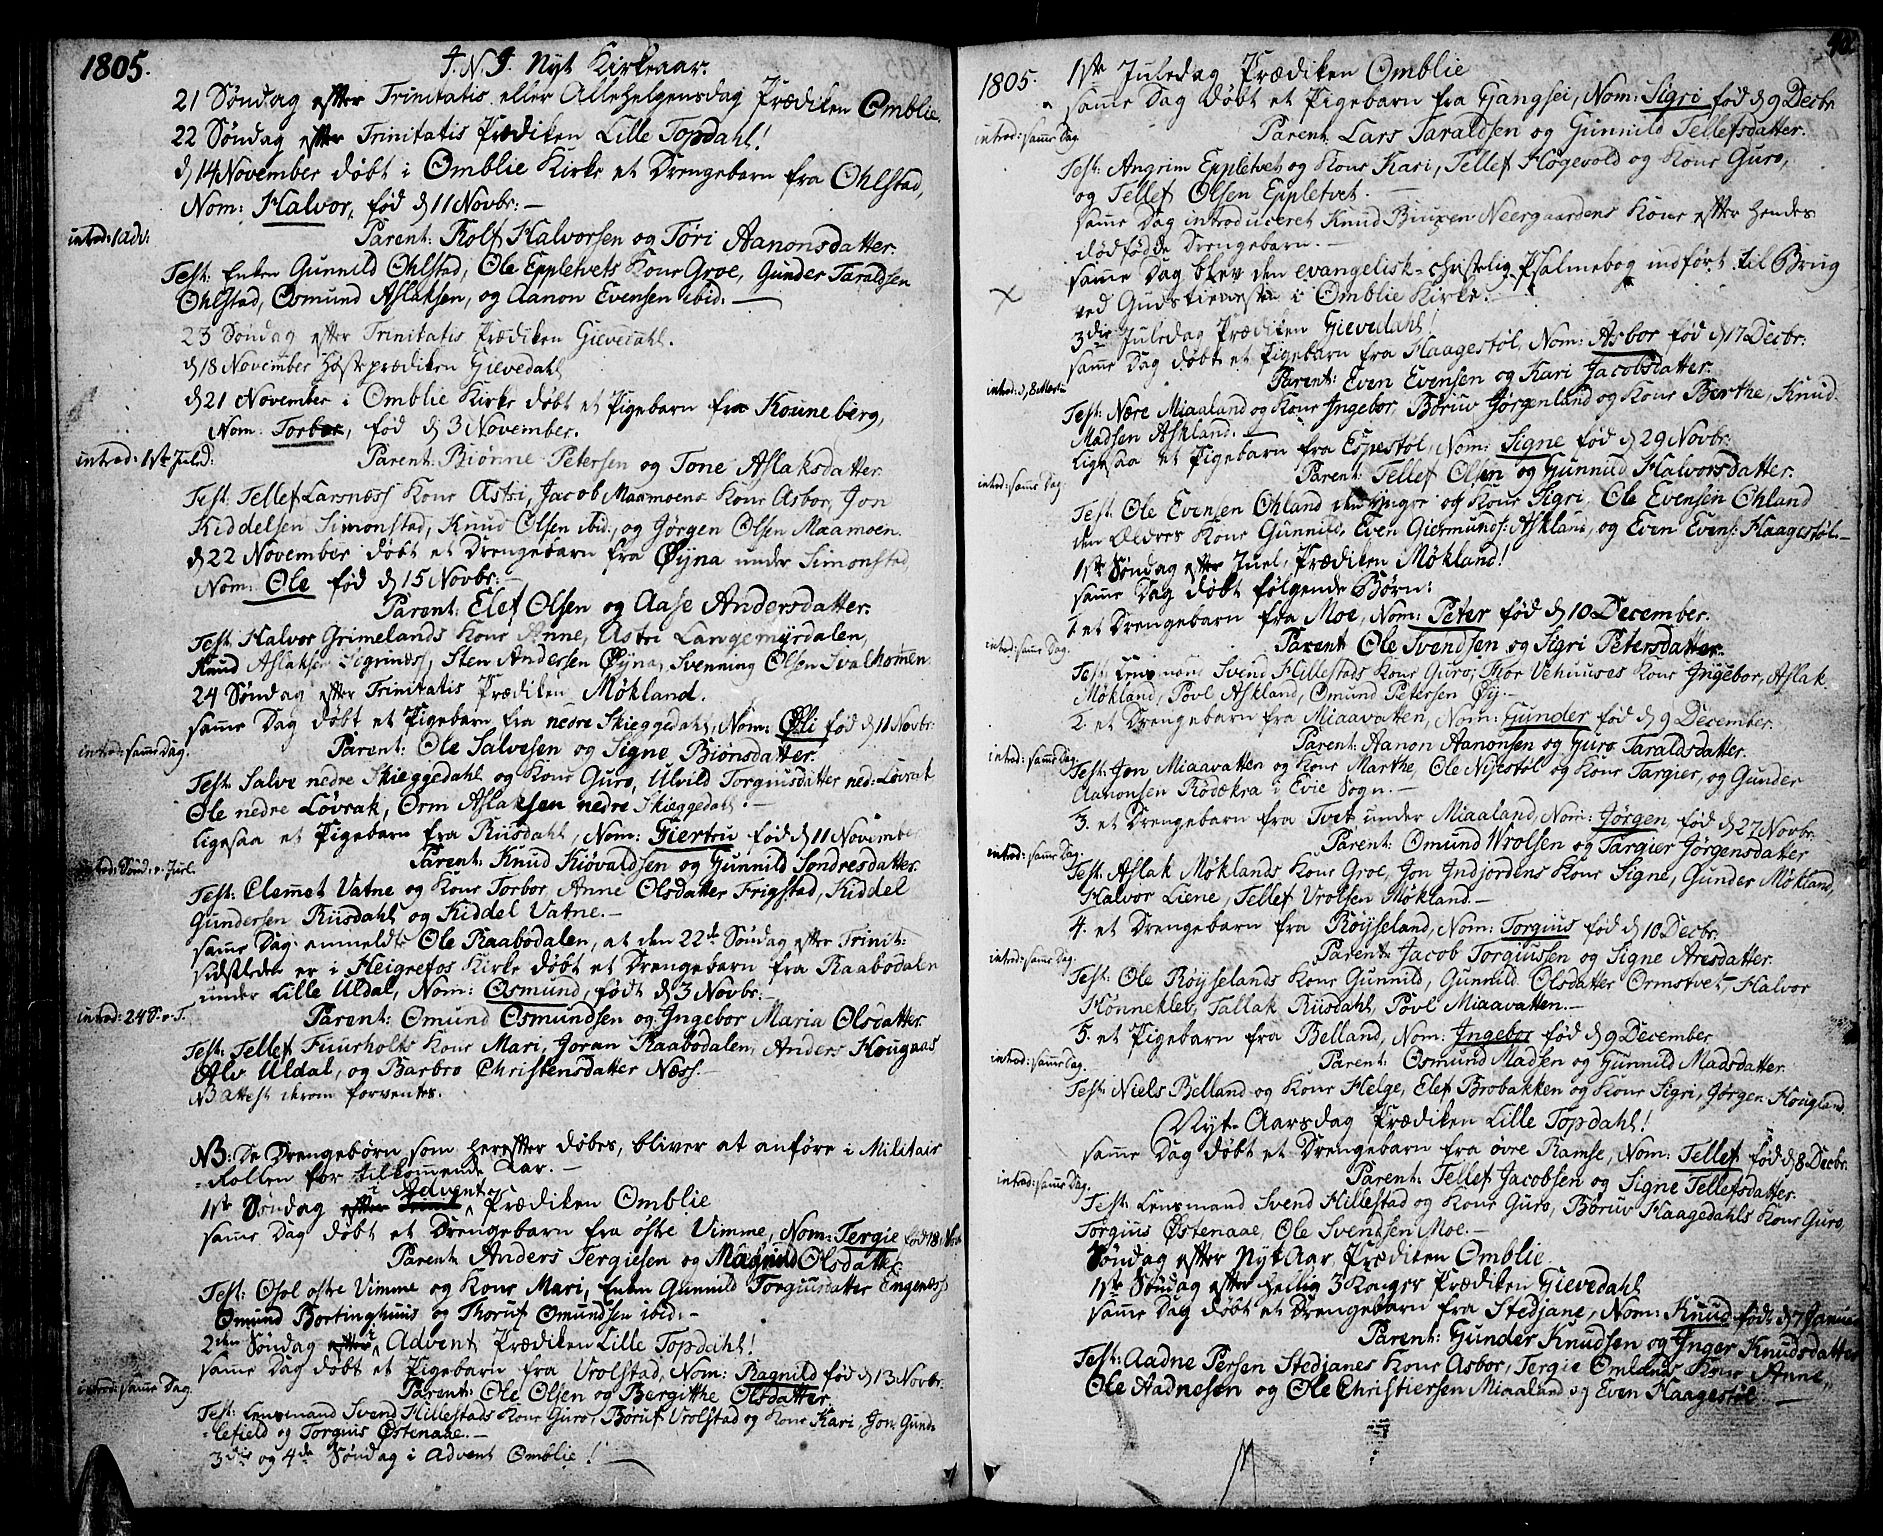 1805.
J. N. J. Nyt Kirkeaar.
21 Søndag efter Trinitatis eller Allehelgensdag Prædiken Omblie.
22 Søndag efter Trinitatis Prædiken Lille Topdahl!
d 14 November døbt i Omblie Kirke et Drengebarn fra Ohlstad,
Nom: Halvor, fød d 11 Novbr: —
introd: 1 Adv:
Parent: Rolf Halvorsen og Tøri Aanonsdatter.
Test: Enken Gunnild Ohlstad, Ole Eppletvets Kone Groe, Gunder Taraldsen
Ohlstad, Osmund Aslaksen, og Aanon Evensen ibid. —
23 Søndag efter Trinitatis Prædiken Gievedahl.
d 18 November Høstprædiken Gievedahl
d 21 November i Omblie Kirke døbt et Pigebarn fra Kouneberg,
Nom: Torbor, fød d 3 November.
introd: 1ste Juled:
Parent: Biønne Petersen og Tone Aslaksdatter.
Test: Tellef Larsnæss Kone Astri, Jacob Maamoens Kone Asbor, Jon
Kiddelsen Simonstad, Knud Olsen ibid:, og Jørgen Olsen Maamoen.
d 22 November døbt et Drengebarn fra Øÿna under Simonstad
Nom: Ole fød d 15 Novbr: —
Parent: Elef Olsen og Aase Andersdatter.
Test: Halvor Grimelands Kone Anne, Astri Langemyrdalen,
Knud Aslaksen Sigrinæss, Sten Andersen Øÿna, Svenning Olsen Svalhomen.
24 Søndag efter Trinitatis Prædiken Møkland.
samme Dag døbt et Pigebarn fra nedre Skieggedahl, Nom: Øli fød d 11 Novbr
introd: samme Dag.
Parent: Ole Salvesen og Signe Biønsdatter.
Test: Salve nedre Skieggedahl og Kone Guro, Ulvild Torgiusdatter ned: Løvrak
Ole nedre Løvrak, Orm Aslaksen nedre Skieggedahl! —
ligesaa et Pigebarn fra Riisdahl, Nom: Giertru fød d 11 November
introd: Sønd: e. Juel.
Parent: Knud Kiøvaldsen og Gunnild Sondresdatter.
Test: Clemet Vatne og Kone Torbor, Anne Olsdatter Frigstad, Kiddel
Gundersen Riisdahl og Kiddel Vatne. —
samme Dag anmeldte Ole Raabodalen, at den 22de Søndag efter Trinit:
sidstleden er i Heigrefos Kirke døbt et Drengebarn fra Raabodalen
under Lille Uldal, Nom: Osmund, født d 3 Novbr: —
introd: 24 S. e T.
Parent: Omund Osmundsen og Ingebor Maria Olsdatter.
Test: Tellef Fuurholts Kone Mari, Joran Raabodalen, Anders Hougnaas
Alv Uldal, og Barbro Christensdatter Næss. —
NB Attest derom forventes.
NB: De Drengebørn som herefter døbes, bliver at anføre i Militair
-Rollen for tilkommende Aar. —
1ste Søndag efter Trinit i Advent Prædiken Omblie
samme Dag døbt et Drengebarn fra østre Vimme, Nom: Tergie fød 18 Nov
Parent: Anders Tergiesen og Magnild Olsdatter.
Test: Osol østre Vimme og Kone Mari, Enken Gunnild Torgiusdatter Engenæss
Omund Bortinghuus og Thoruf Omundsen ibid: —
2den Søndag efter i Advent Prædiken Lille Topdahl!
samme Dag døbt et Pigebarn fra Vrolstad, Nom: Ragnild fød d 13 Novbr.
introd: samme Dag.
Parent: Ole Olsen og Bergitthe Olsdatter.
Test: Lensmand Svend Hillestads Kone Guro, Børuf Vrolstad og Kone Kari, Jon Gunde
-lefield og Torgius Østenaae. —
3die og 4de Søndag i Advent Omblie! —
1805.
1ste Juledag Prædiken Omblie
samme Dag døbt et Pigebarn fra Gangsei, Nom: Sigri fød d 9 Decbr.
introd: samme Dag
Parent: Lars Taraldsen og Gunnild Tellefsdatter.
Test: Angrim Eppletvet og Kone Kari, Tellef Høgevold og Kone Guro,
og Tellef Olsen Eppletvet. —
samme Dag introduceret Knud Neergaardens Kone efter hendes
dødfødde Drengebarn. —
samme Dag blev den evangelisk-christelig Psalmebog indført til Brug
ved Gudstienesten i Omblie Kirke. —
3die Juledag Prædiken Gievedahl!
samme Dag døbt et Pigebarn fra Haagestøl, Nom: Asbor fød d 17 Decbr:
introd: d 8 Martii
Parent: Even Evensen og Kari Jacobsdatter.
Test: Nære Miaaland og Kone Ingebor, Børuv Jørgenland og Kone Berthe, Knud
Madsen Askland. —
ligesaa et Pigebarn fra Espestøl, Nom: Signe fød d 29 Novbr.
introd: samme Dag
Parent: Tellef Olsen og Gunnild Halvorsdatter.
Test: Ole Evensen Ohland den yngre og Kone Sigri, Ole Evensen Ohland
den Ældres Kone Gunnild, Even Giermunds: Askland, og Even Evens: Haagestøl. —
1ste Søndag efter Juel, Prædiken Møkland!
samme Dag døbt følgende Børn:
1. et Drengebarn fra Moe, Nom: Peter fød d 10 December.
introd: samme Dag.
Parent Ole Svendsen og Sigri Petersdatter.
Test: Lensmand Svend Hillestads Kone Guro, Thor Vehuuses Kone Ingebor, Aslak
Møkland, Povl Askland, Omund Petersen Øÿ. —
2. et Drengebarn fra Miaavatten, Nom: Gunder fød d 9 December.
introd: samme Dag.
Parent: Aanon Aanonsen og Guro Taraldsdatter.
Test: Jon Miaavatten og Kone Marthe, Ole Nisestøl og Kone Targier, og Gunder
Aanonsen Rødækra i Evie Sogn. —
3. et Drengebarn fra Tvet under Miaaland, Nom: Jørgen, fød d 27 Novbr.
introd: samme Dag.
Parent: Omund Wrolsen og Targier Jørgensdatter
Test: Aslak Møklands Kone Groe, Jon Indjordens Kone Signe, Gunder Møkland,
Halvor Liene, Tellef Vrolsen Møkland. —
4. et Drengebarn fra Røysseland, Nom: Torgius fød d 10 Decbr.
introd: samme Dag.
Parent: Jacob Torgiussen og Signe Aresdatter.
Test: Ole Røysselands Kone Gunnild, Gunnild Olsdatter Ormstvet, Halvor
Hønneklev, Tallak Riisdahl, Povl Miaavatten. —
5. et Pigebarn fra Belland, Nom: Ingebor fød d 9 December
introd: samme Dag.
Parent: Osmund Madsen og Gunnild Madsdatter.
Test: Niels Belland og Kone Helge, Elef Brobakken og Kone Sigri, Jørgen Hougland.
Nyt-Aarsdag Prædiken Lille Topdahl!
samme Dag døbt et Drengebarn fra øvre Ramse, Nom: Tellef fød d 8 Decbr.
introd: samme Dag.
Parent: Tellef Jacobsen og Signe Tellefsdatter.
Test: Lensmand Svend Hillestad og Kone Guro, Børuv Haagedahls Kone Guro,
Torgius Østenaae, Ole Svendsen Moe. —
Søndag efter Nyt Aar, Prædiken Omblie
1ste Søndag efter Hellig 3 Konger Prædiken Gievedahl
samme Dag døbt et Drengebarn fra Stedjane, Nom: Knud født d 7 Januar
Parent: Gunder Knudsen og Inger Knudsdatter
Test: Aadne Persen Stedjanes Kone Asbor, Tergie Omlands Kone Anne,
Ole Aadnesen og Ole Christiersen Miaaland og Even Haagestøl. —